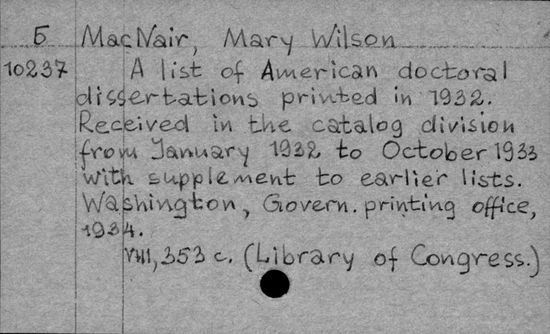 Б MacNair, Mary Wilson
10237 A list of American doctoral
dissertations printed in 1932.
Received in the catalog division
from January 1932 to October 1933
with supplement to earlier lists.
Washington, Govern. printing office,
1934.
VIII, 353 c. (Library of Congress.)